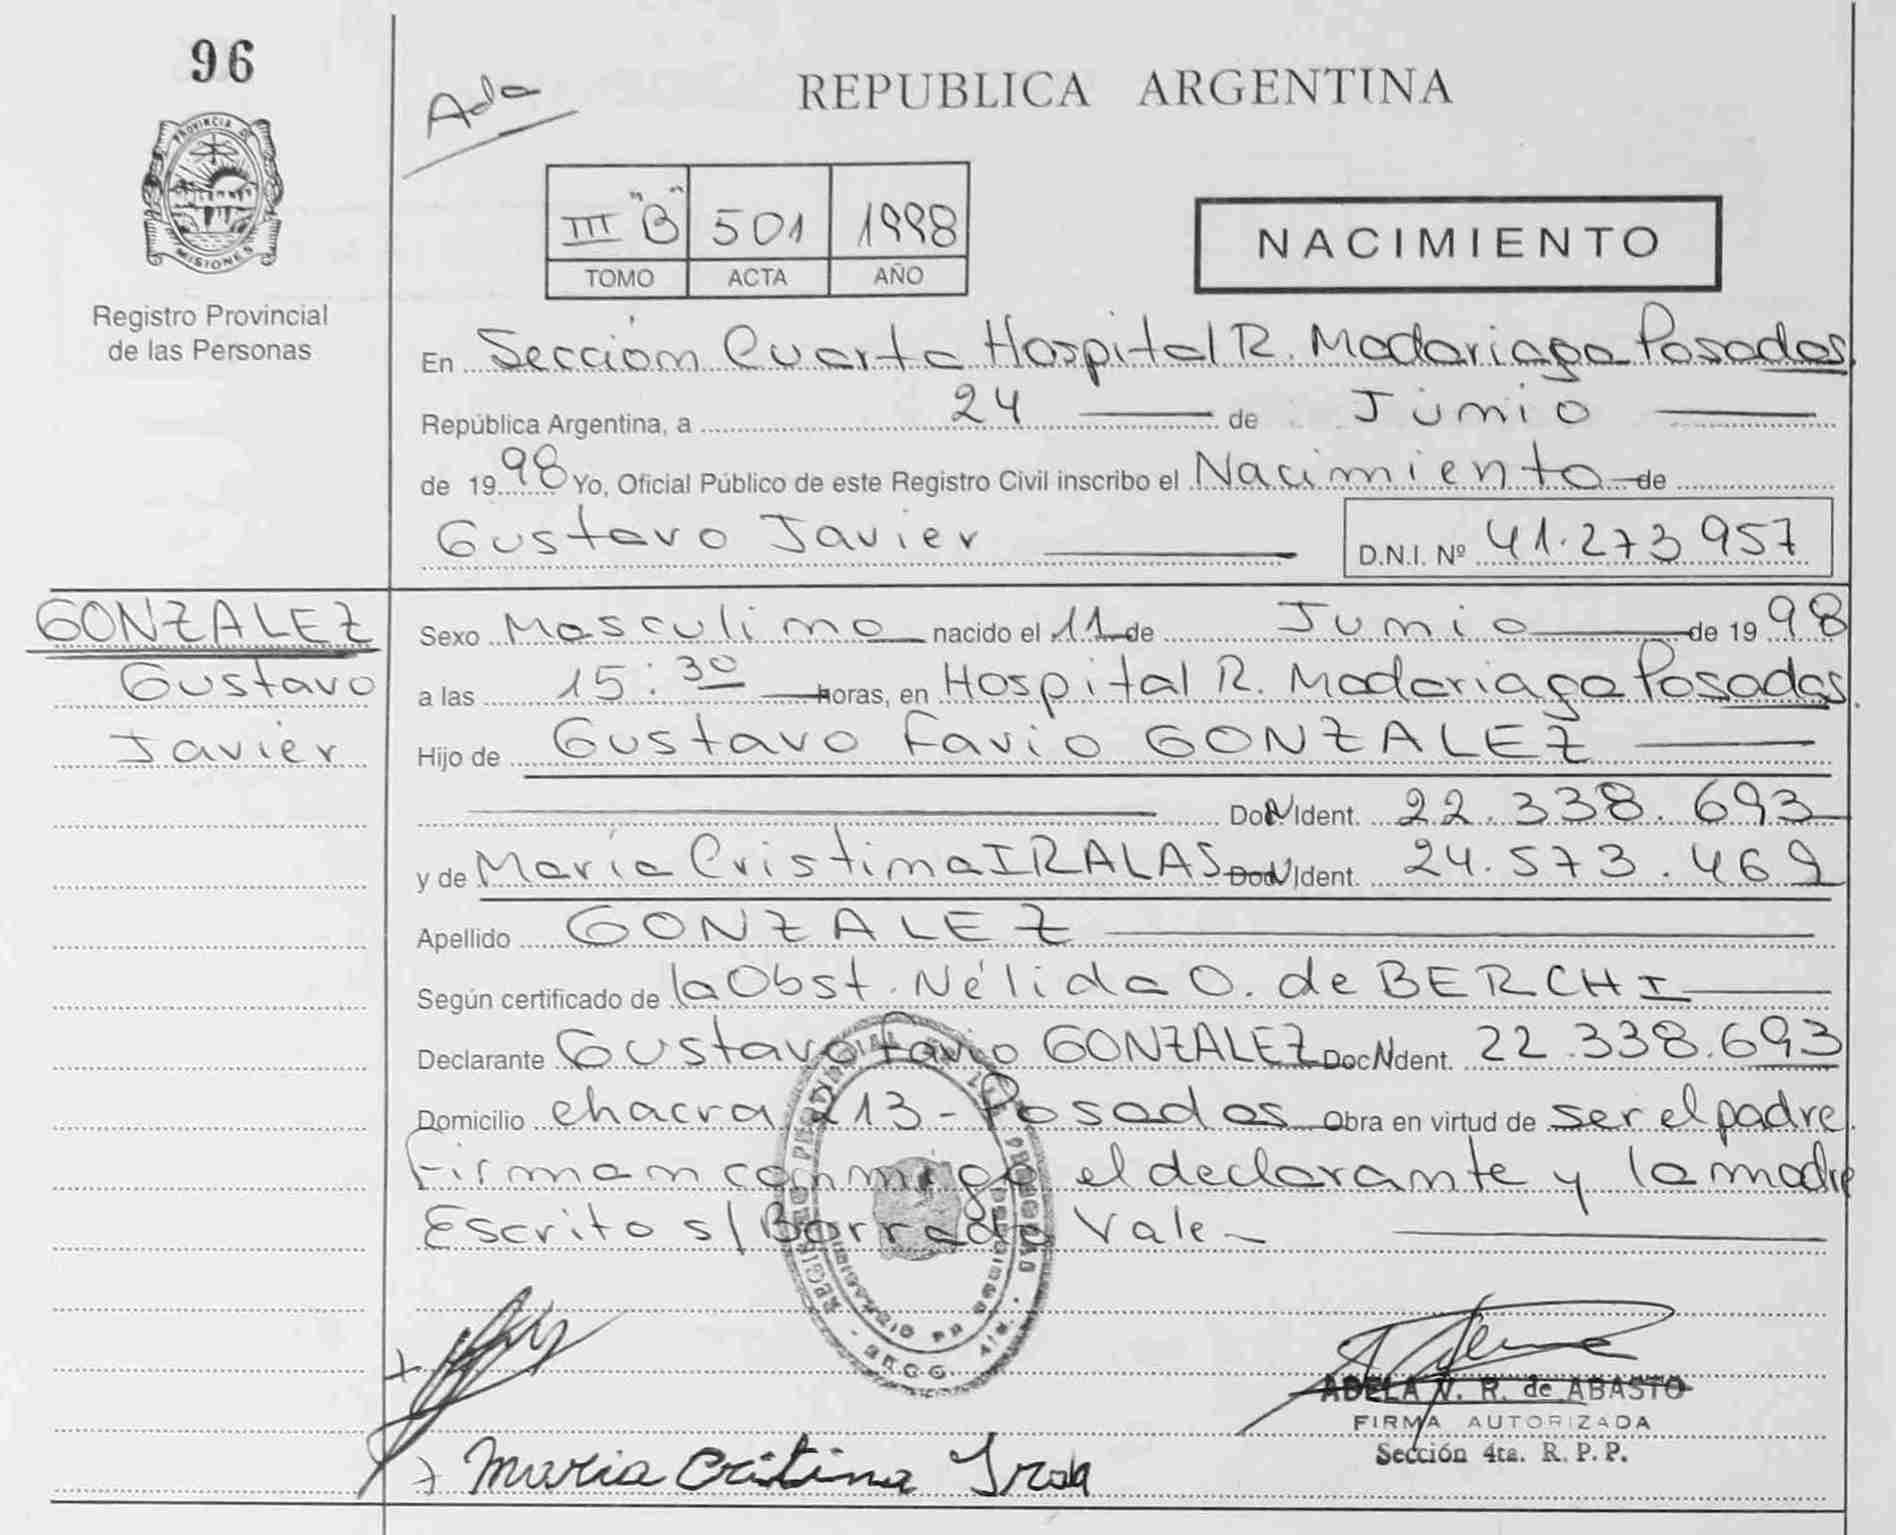 96
Ada
REPUBLICA ARGENTINA
PROVINCIA DE
MISIONES
Registro Provincial
de las Personas
III "B" 501 1998
TOMO ACTA AÑO
NACIMIENTO
En Sección Cuarta Hospital R. Madariaga Posadas
República Argentina, a 24 de Junio
de 1998 Yo, Oficial Público de este Registro Civil inscribo el Nacimiento de
Gustavo Javier D.N.I. Nº 41.273957
GONZALEZ
Gustavo
Javier
Sexo Masculino nacido el 11 de Junio de 1998
a las 15:30 horas, en Hospital R. Madariaga Posadas
Hijo de Gustavo Favio GONZALEZ
Doc N Ident. 22.338.693
y de María Cristina IRALAS Doc N Ident. 24.573.469
Apellido GONZALEZ
Según certificado de la Obst. Nélida O. de BERCHI
Declarante Gustavo Favio GONZALEZ Doc N dent. 22.338.693
Domicilio chacra 213 - Posadas Obra en virtud de ser el padre.
Firman conmigo el declarante y la madre
Escrito s/ Borrado Vale
ADELA V. R. de ABASTO
FIRMA AUTORIZADA
Sección 4ta. R. P. P.
Maria Cristina Irala